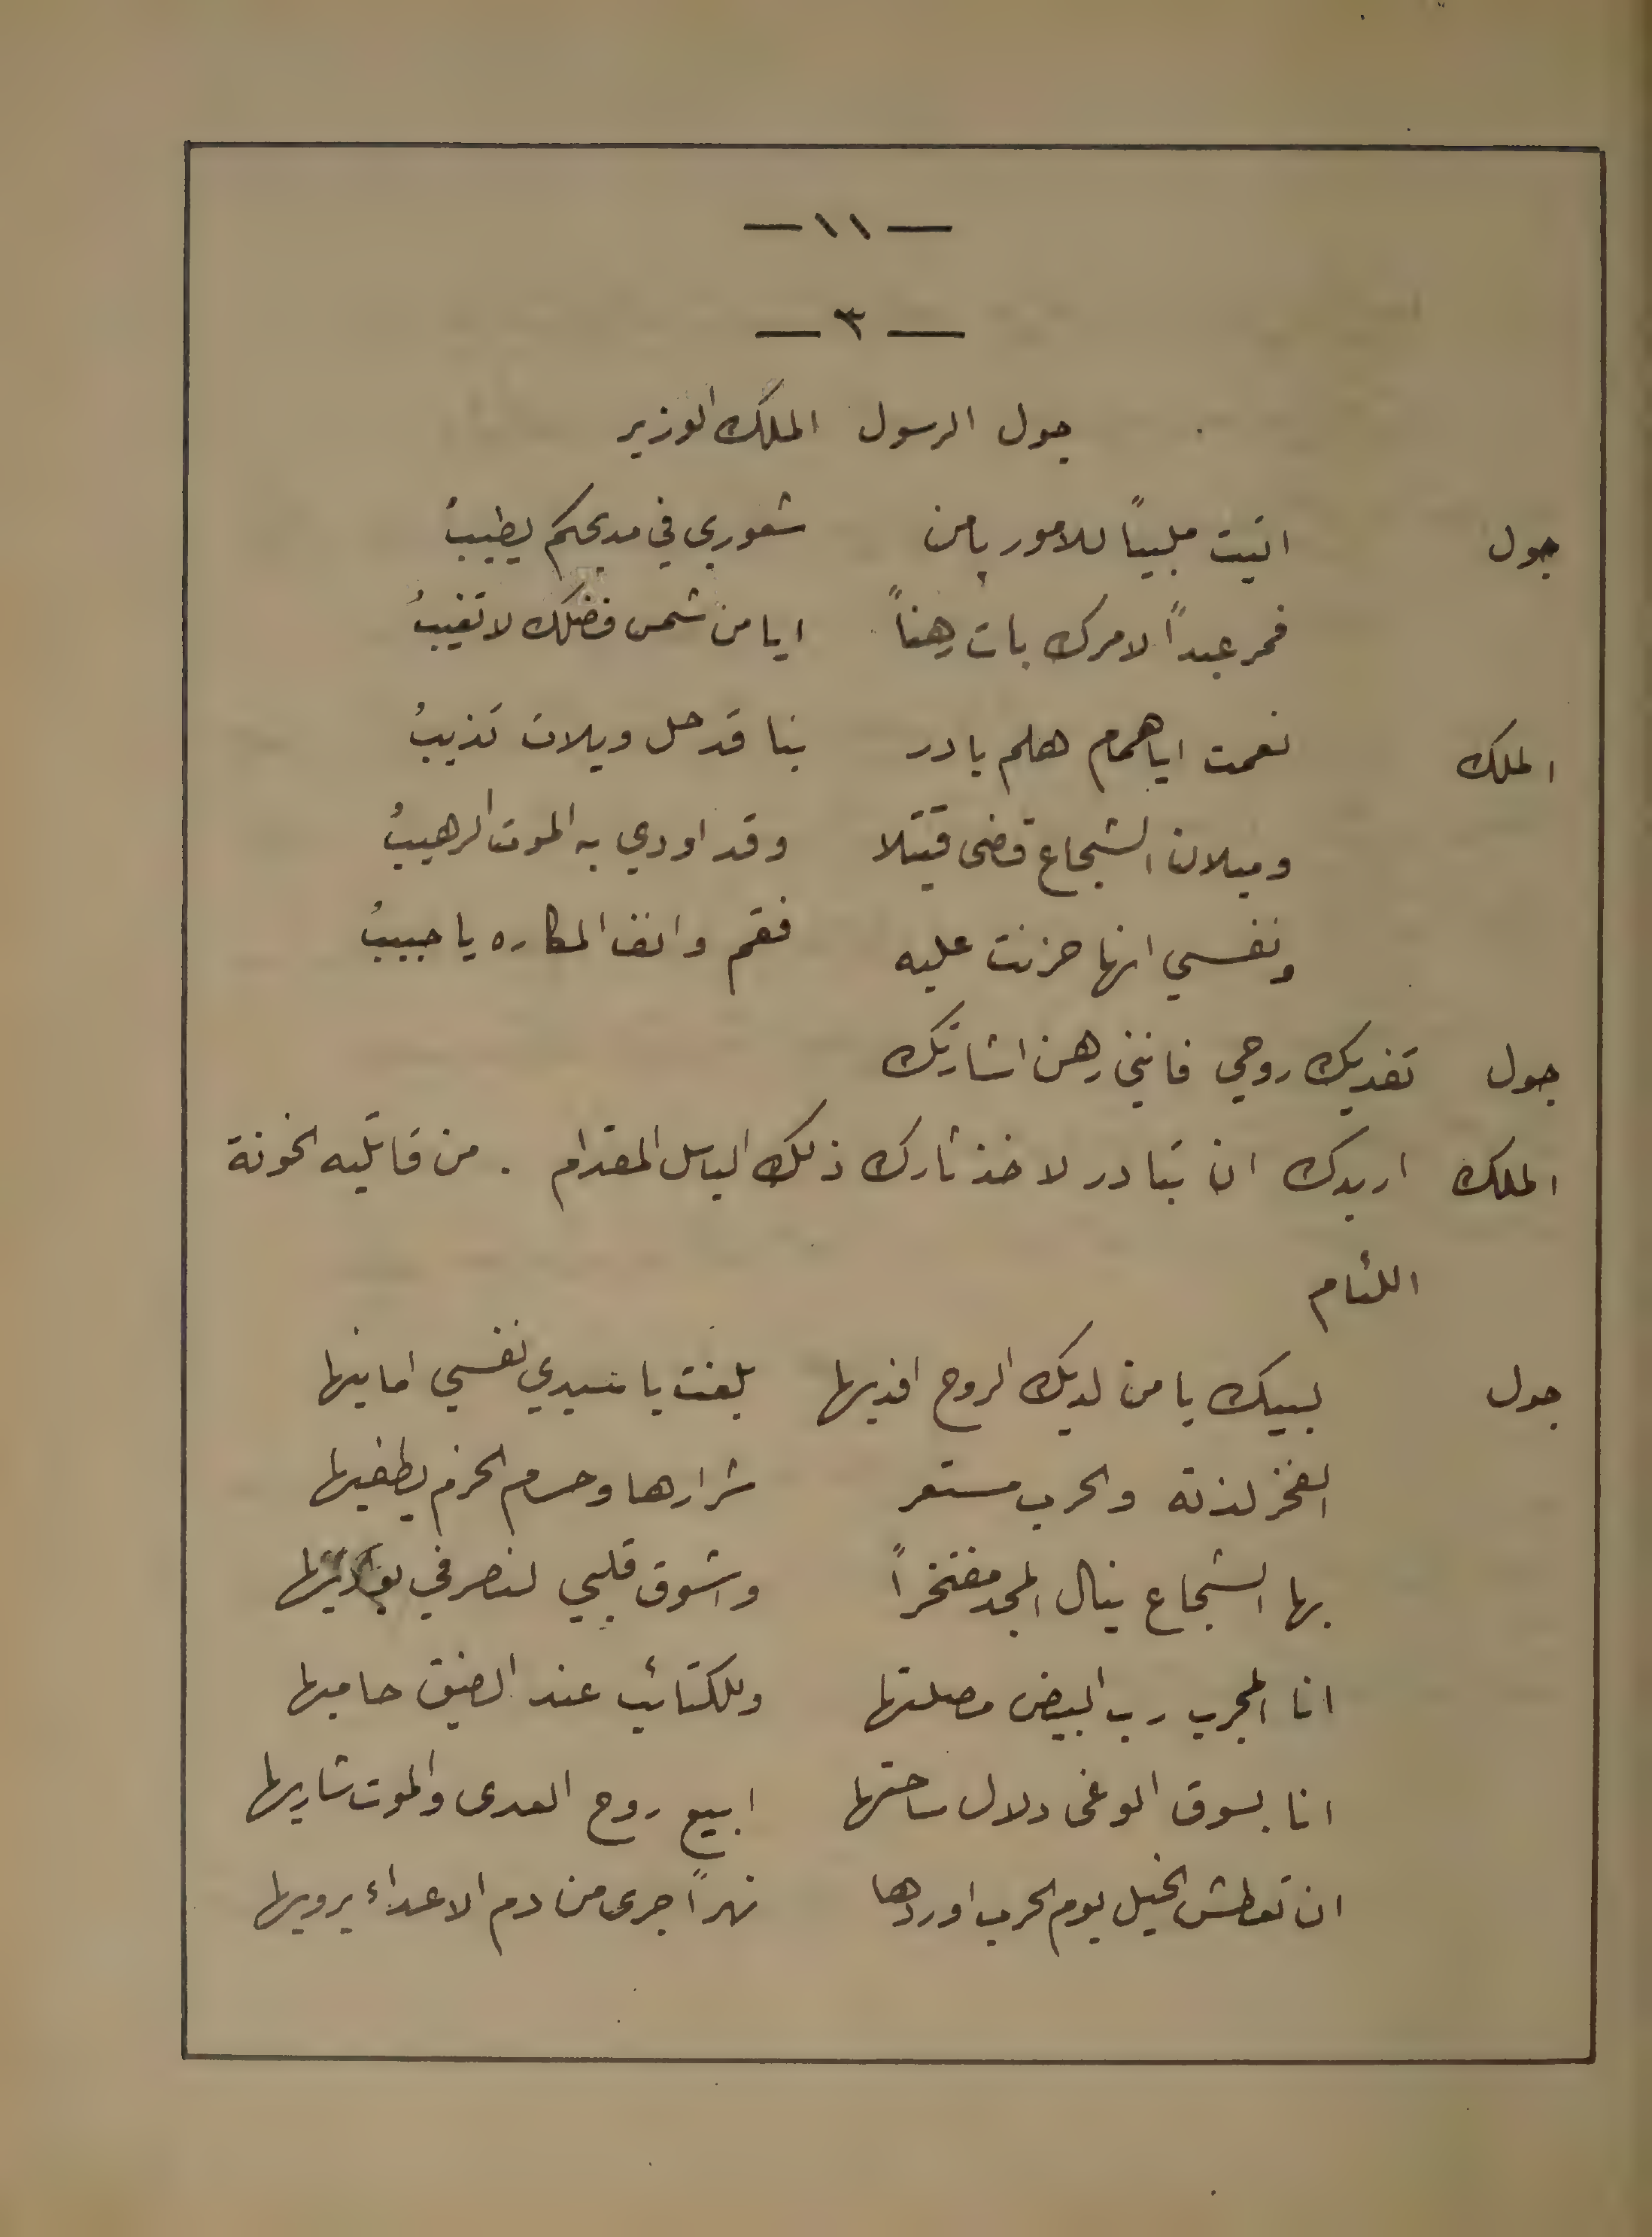 — ١١ —
— ٣ —
جول الرسول الملك الوزير
جول اتيت ملبياً للامور يامن شعوري في مديحكم يطيبُ
فمر عبداً لامرك بات رهناً ايا من شمس فضلك لا تغيبُ
الملك نعمت ايا همام هلم بادر بنا قد حل ويلات تذيبُ
وميلان الشجاع قضى قتيلا وقد اودي به الموت الرهيبُ
ونفسي انها حزنت عليه فقم وانف المكاره يا حبيبُ
جول تفديك روحي فانني رهن اشارتك
الملك اريدك ان تبادر لاخذ ثارك ذلك الباسل المقدام . من قاتليه الخونة
اللئام
جول لبيك يا من لديك الروح افديها بلغت يا سيدي نفسي امانيها
الفخر لذته والحرب مستعر شرارها وحسام الحزم يطفيها
بها الشجاع ينال المجد مفتخراً واشوق قلبي لنصر في
انا المجرب رب البيض مصلتها وللكتائب عند الضيق حاميها
انا بسوق الوغى دلال ساحتها ابيع روح العدى والموت شاريها
ان تعطش الخيل يوم الحرب اوردها نهراً جرى من دم الاعداء يرويها